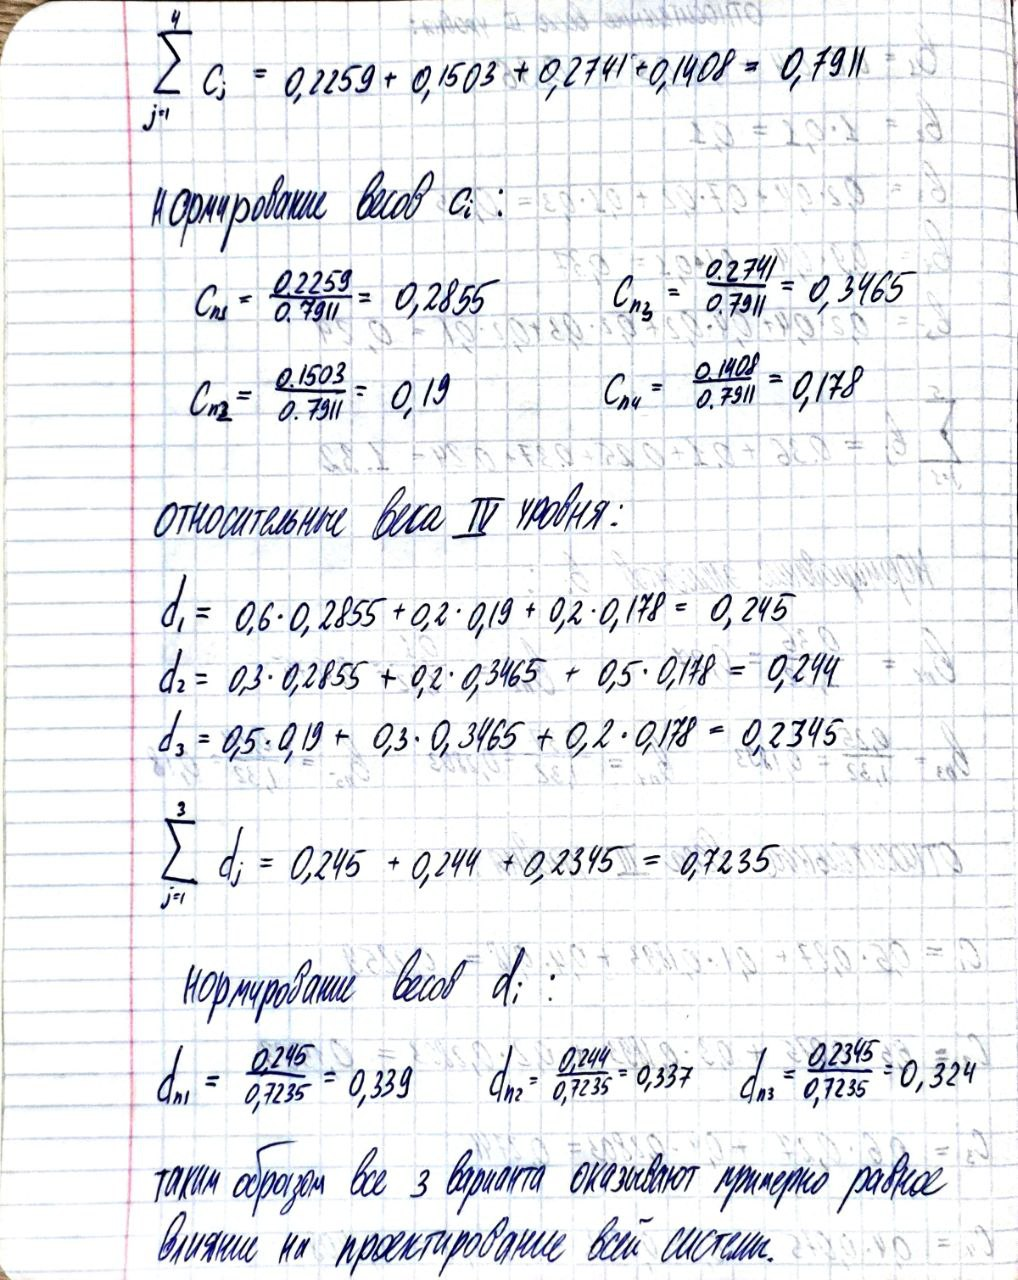 4
∑ Cj = 0,2259 + 0,1503 + 0,2741 + 0,1408 = 0,7911
j=1
нормирование весов ci :
Cп1 = 0.2259/0.7911 = 0,2855 Cп3 = 0.2741/0.7911 = 0,3465
Cп2 = 0.1503/0.7911 = 0,19 Cп4 = 0.1408/0.7911 = 0,178
относительные века IV уровня:
d1 = 0,6·0,2855 + 0,2·0,19 + 0,2·0,178 = 0,245
d2 = 0,3·0,2855 + 0,2·0,3465 + 0,5·0,178 = 0,244
d3 = 0,5·0,19 + 0,3·0,3465 + 0,2·0,178 = 0,2345
3
∑ dj = 0,245 + 0,244 + 0,2345 = 0,7235
j=1
нормирование весов di :
dп1 = 0,245/0,7235 = 0,339 dп2 = 0,244/0,7235 = 0,337 dп3 = 0,2345/0,7235 = 0,324
таким образом все 3 варианта оказывают примерно равное
влияние на проектирование всей системы.